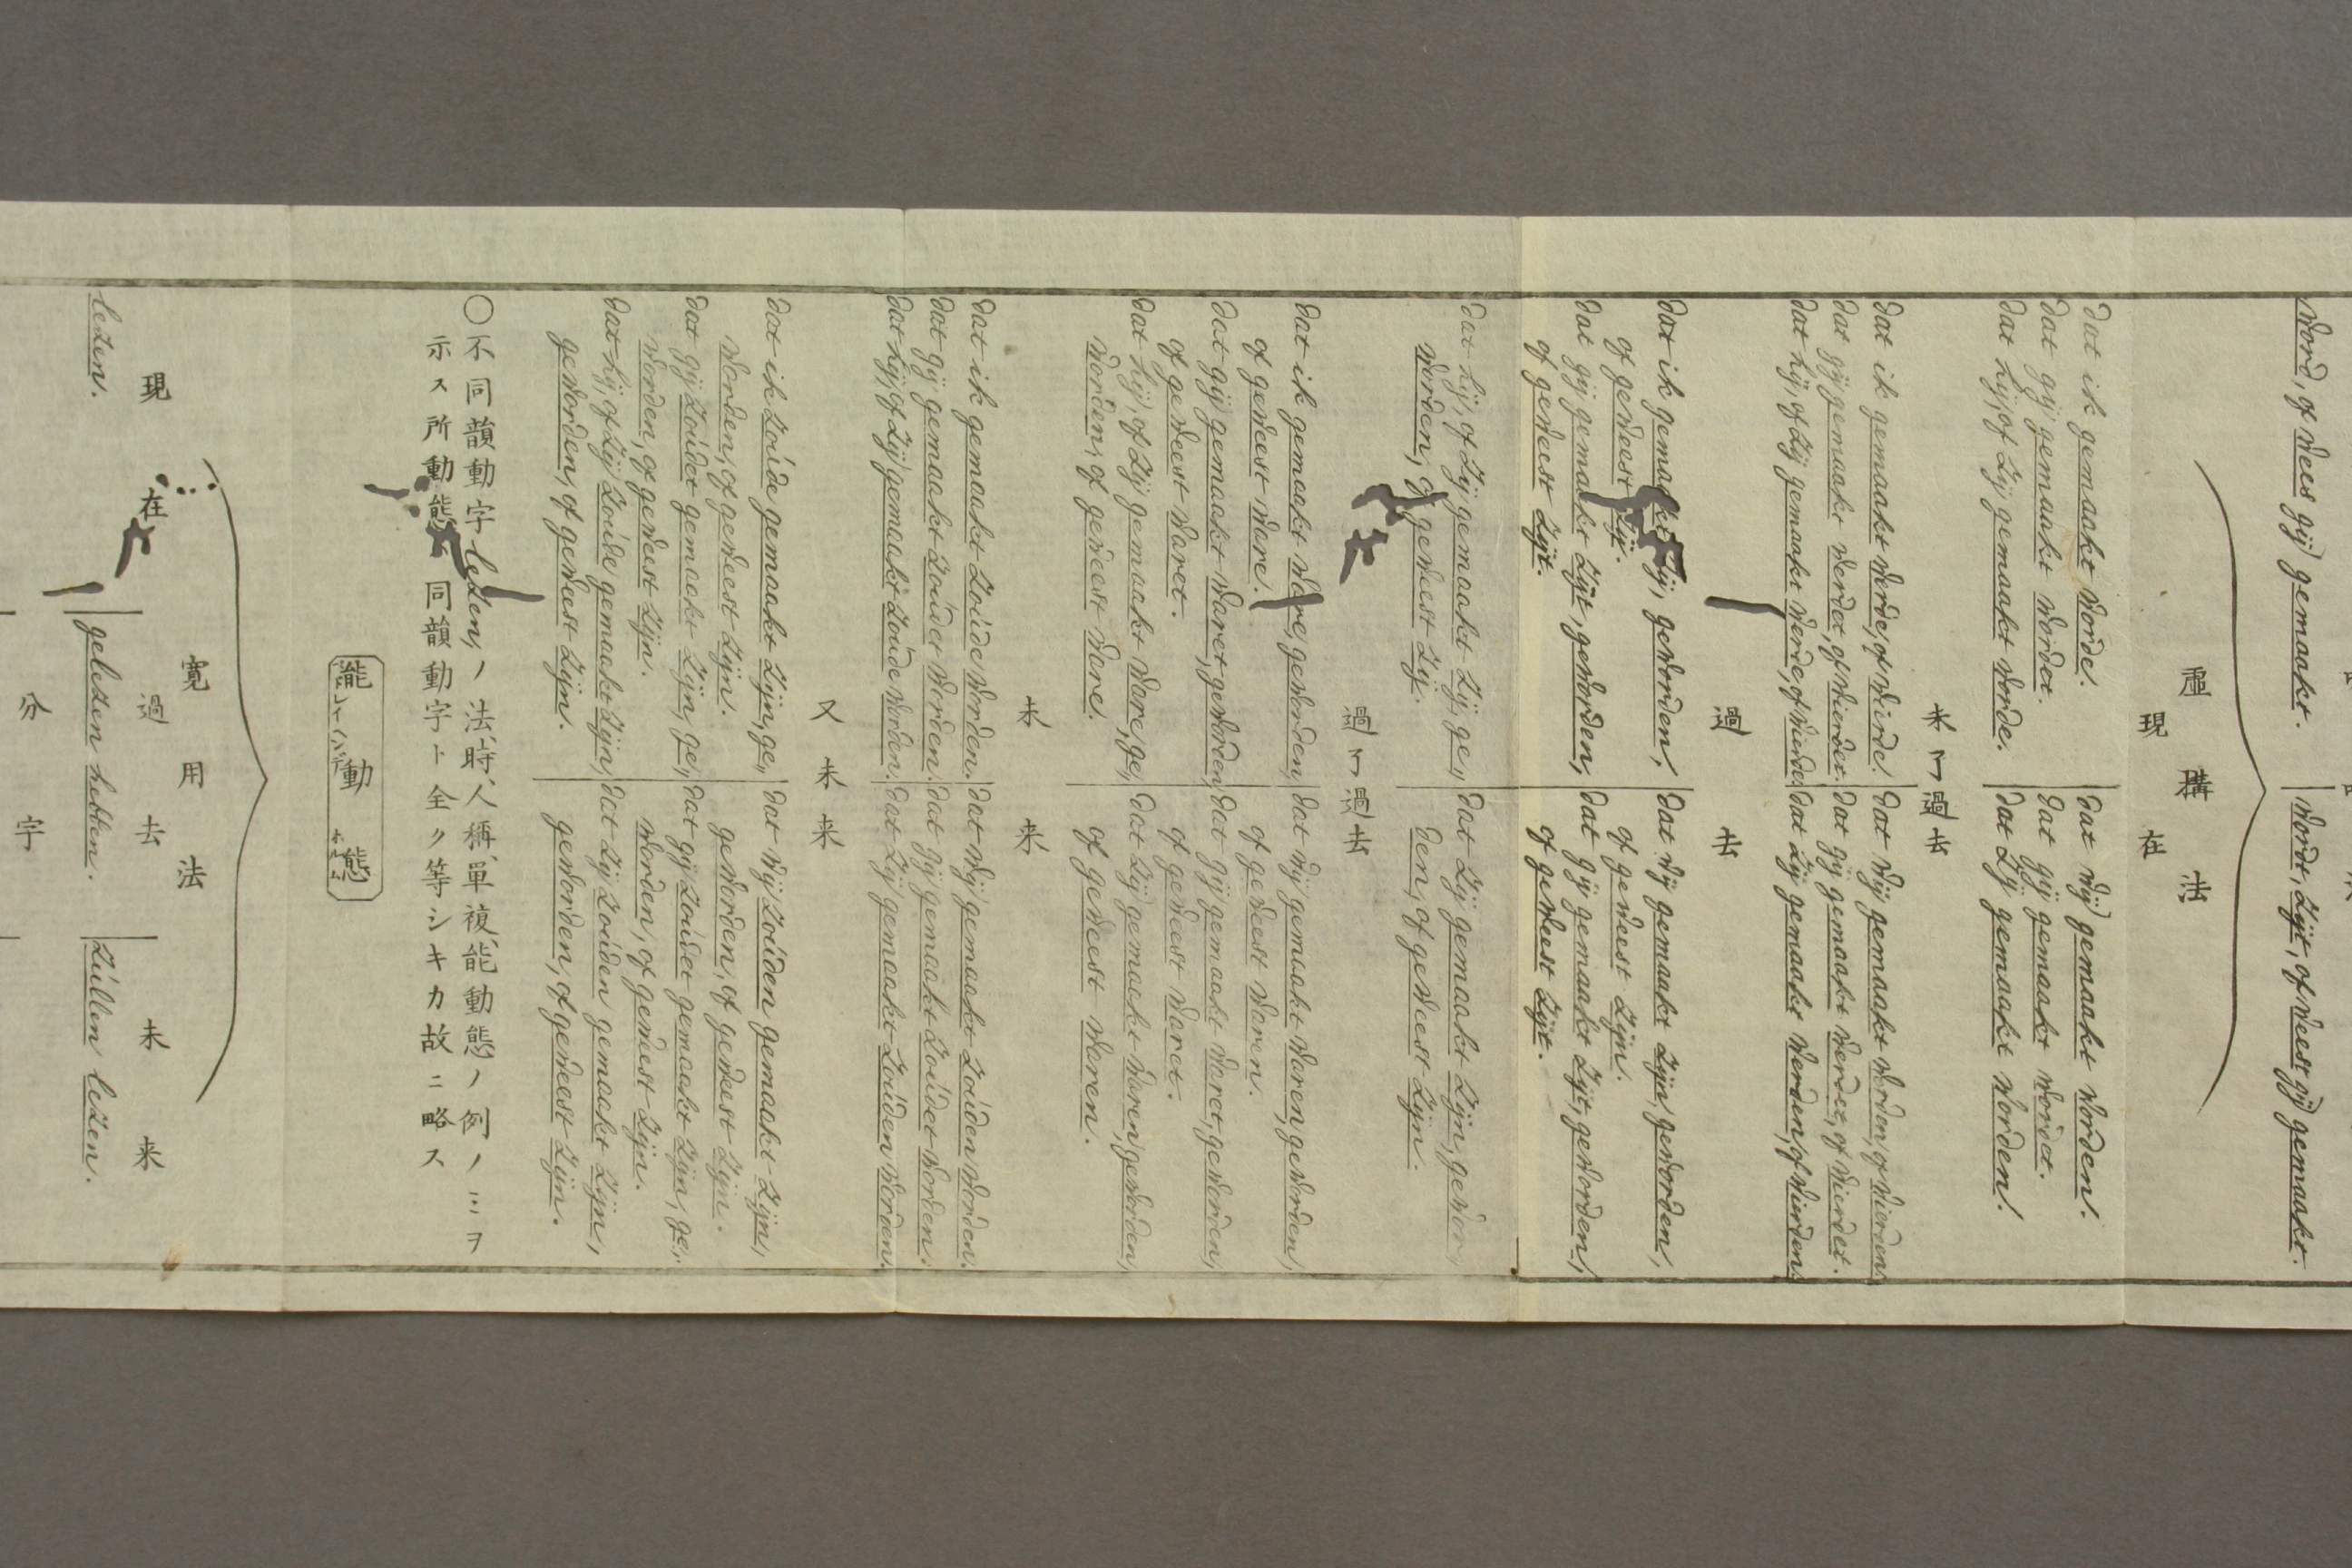 word, of wees gij gemaakt.
wordt, zijt, of weest gij gemaakt.
虛構法
現在
dat ik gemaakt worde.
dat gij gemaakt wordet.
dat hij, of zij gemaakt worde.
dat wij gemaakt worden.
dat gij gemaakt wordet.
dat zij gemaakt worden.
未了過去
dat ik gemaakt werde, of wierde.
dat gij gemaakt werdet, of wierdet.
dat hij, of zij gemaakt werde, of wierde.
dat wij gemaakt werden, of wierden.
dat gij gemaakt werdet, of wierdet.
dat zij gemaakt werden, of wierden.
過去
dat ik gemaakt zij, geworden,
of geweest zij.
dat gij gemaakt zijt, geworden,
of geweest zijt.
dat hij, of zij gemaakt zij, ge,,
worden, of geweest zij.
dat wij gemaakt zijn, geworden,
of geweest zijn.
dat gij gemaakt zijt, geworden,
of geweest zijt.
dat zij gemaakt zijn, gewor,,
den, of geweest zijn.
過了過去
dat ik gemaakt ware, geworden,
of geweest ware.
dat gij gemaakt waret, geworden,
of geweest waret.
dat hij, of zij gemaakt ware, ge,,
worden, of geweest ware.
dat wij gemaakt waren, geworden,
of geweest waren.
dat gij gemaakt waret, geworden,
of geweest waret.
dat zij gemaakt waren, geworden,
of geweest waren.
未来
dat ik gemaakt zoúde worden.
dat gij gemaakt zoúdet worden.
dat hij, of zij gemaakt zoúde worden.
dat wij gemaakt zoúden worden.
dat gij gemaakt zoúdet worden.
dat zij gemaakt zoúden worden.
又未来
dat ik zoúde gemaakt zijn, ge,,
worden, of geweest zijn.
dat gij zoúdet gemaakt zijn, ge,,
worden, of geweest zijn.
dat hij, of zij zoúde gemaakt zijn,
geworden, of geweest zijn.
dat wij zoúden gemaakt zijn,
geworden, of geweest zijn.
dat gij zoúdet gemaakt zijn, ge,,
worden, of geweest zijn.
dat zij zoúden gemaakt zijn,
geworden, of geweest zijn.
○不同韻動字 lezen, ノ法、時、人稱、單複、能動態ノ例ノミヲ
示ス所動態 同韻動字ト全ク等シキカ故ニ略ス
能動態
寛用法
現在
過去
未来
lezen.
gelezen hebben.
zúllen lezen.
分字